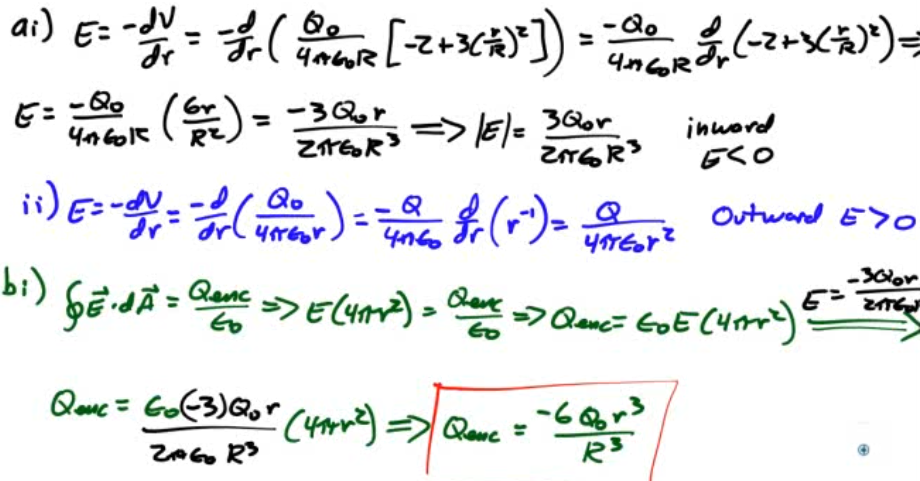 ai) E = -dV/dr = -d/dr ( Q₀/4πε₀R [ -2+3(r/R)² ] ) = -Q₀/4πε₀R d/dr (-2+3(r/R)²) ⇒
E = -Q₀/4πε₀R ( 6r/R² ) = -3Q₀r/2πε₀R³ ⇒ |E| = 3Q₀r/2πε₀R³ inward E<0
ii) E = -dV/dr = -d/dr ( Q₀/4πε₀r ) = -Q/4πε₀ d/dr (r⁻¹) = Q/4πε₀r² Outward E>0
bi) ∮E⃗·dA⃗ = Qenc/ε₀ ⇒ E(4πr²) = Qenc/ε₀ ⇒ Qenc = ε₀E(4πr²) E = -3Q₀r/2πε₀ ⇒
Qenc = ε₀(-3)Q₀r/2πε₀R³ (4πr²) ⇒ Qenc = -6Q₀r³/R³